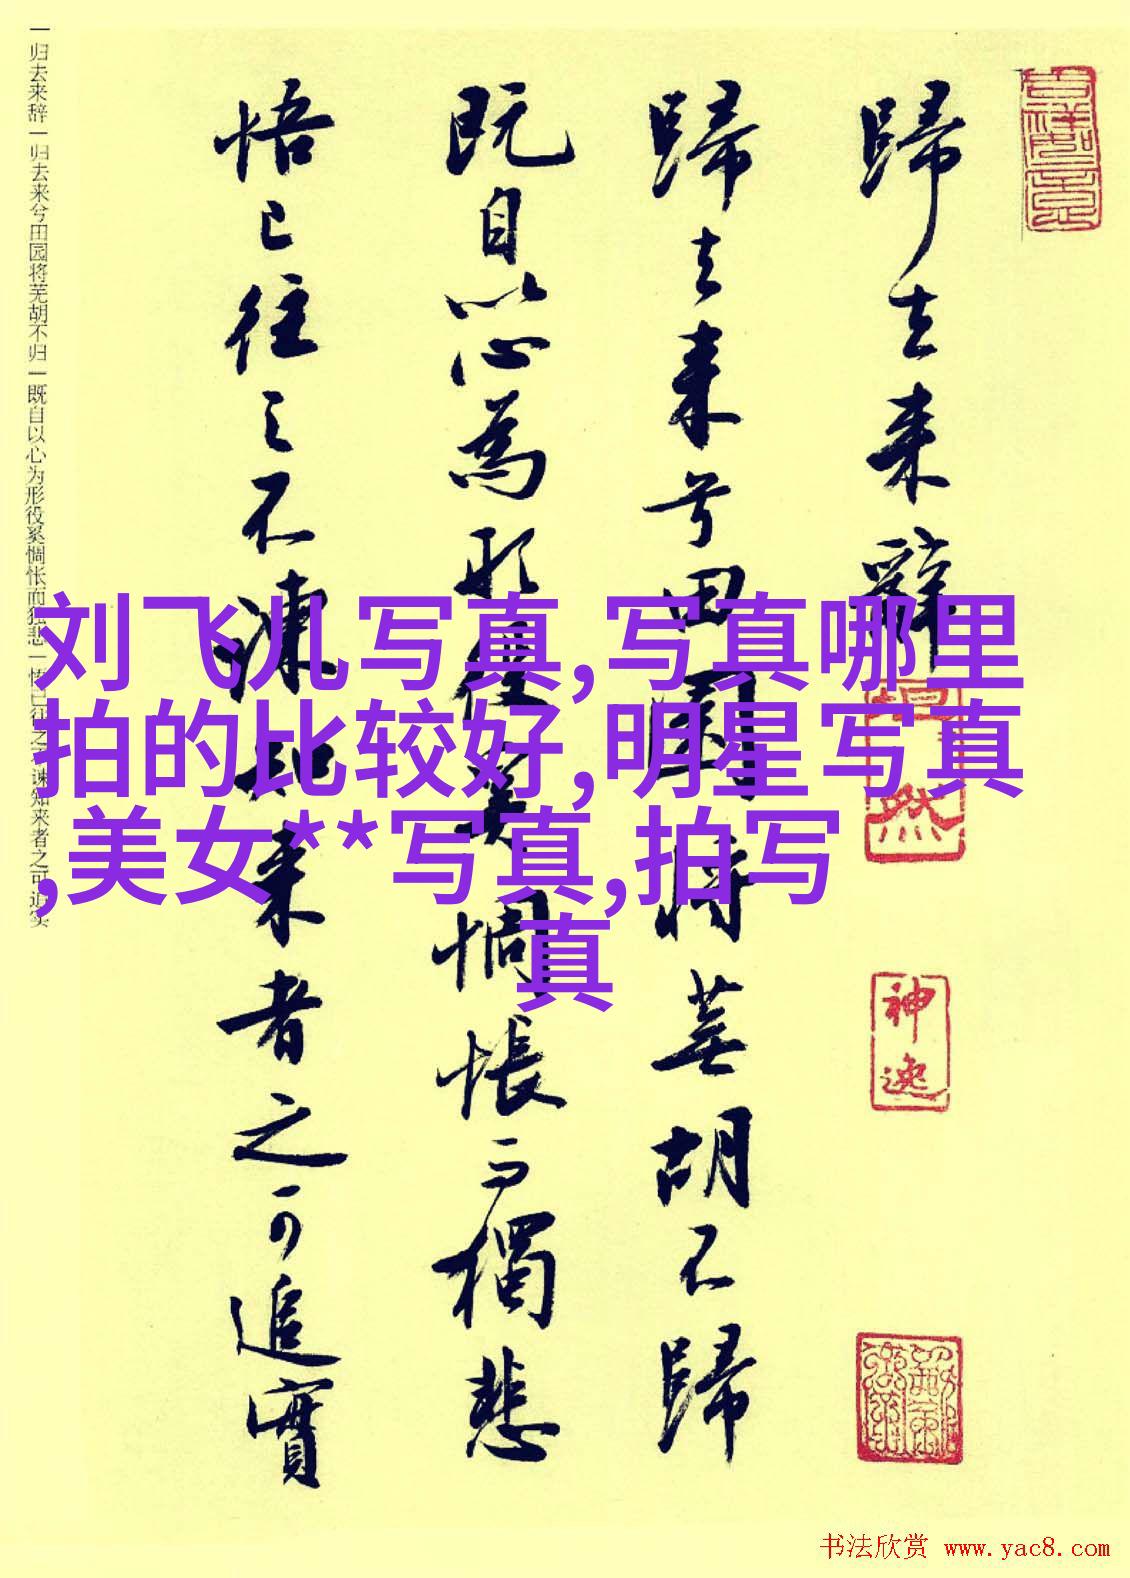 歸去来辭
歸去来兮田園将蕪胡不歸
既自以心為形役奚惆悵而獨悲
悟已往之不諫知来者之可追實
神逸
一归去来辞一归去来兮田园将芜胡不归一既自以心为形役奚惆怅而独悲一悟已往之不谏知来者之可追实
刘飞儿写真,写真哪里
拍的比较好,明星写真
,美女**写真,拍写
真
书法欣赏 www.yac8.com